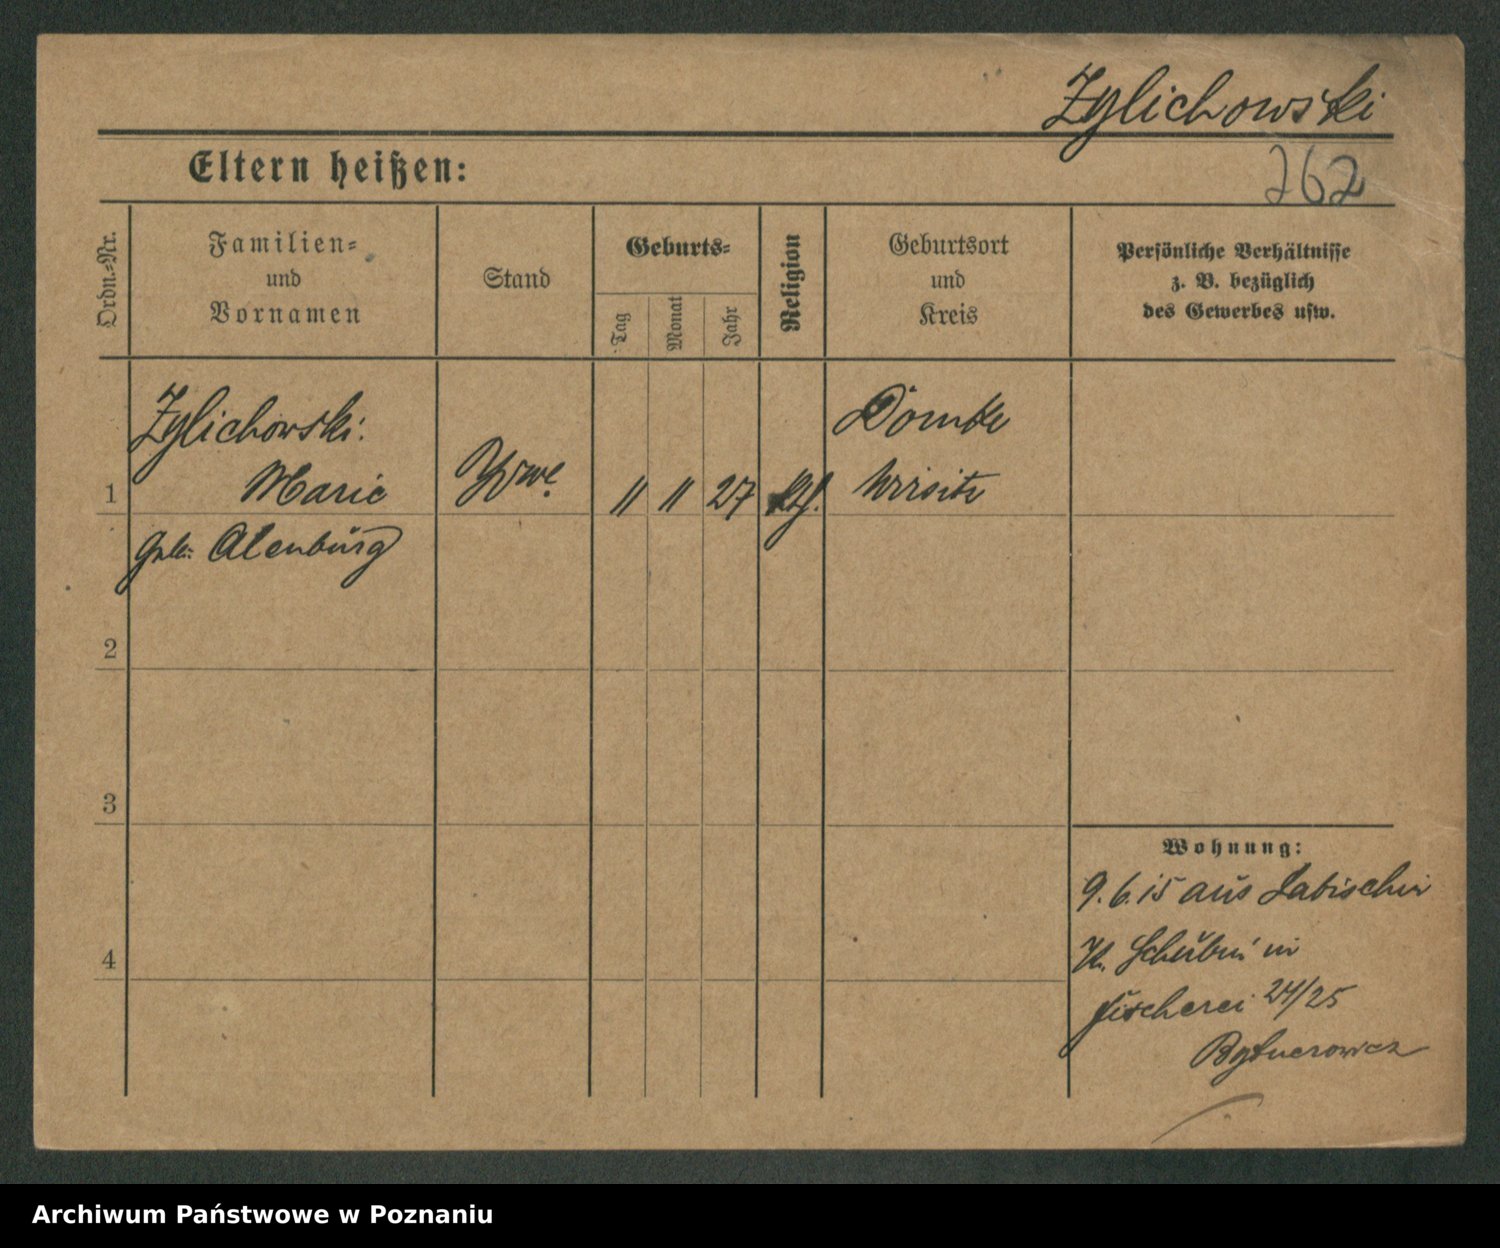 Zylichowski
262
Eltern heißen:
Ordn.-Nr.
Familien-
und
Vornamen
Stand
Geburts-
Tag
Monat
Jahr
Religion
Geburtsort
und
Kreis
Persönliche Verhältnisse
z. B. bezüglich
des Gewerbes usw.
Zylichowski
Domke
1 Marie Wwe. 11 11 27 Kth. Wirsitz
geb. Alenburg
2
3
4
Wohnung:
9.6.15 aus Labischin
Kr. Schubin in
Fischerei 24/25
Bytnerowicz
Archiwum Państwowe w Poznaniu